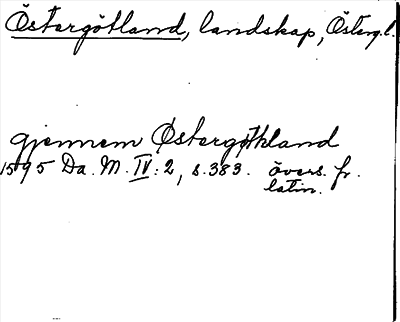 Östergötland, landskap, Österg.l.
gjennem Østergøthland
1595 Da. M. IV: 2, s. 383. övers. fr.
latin.